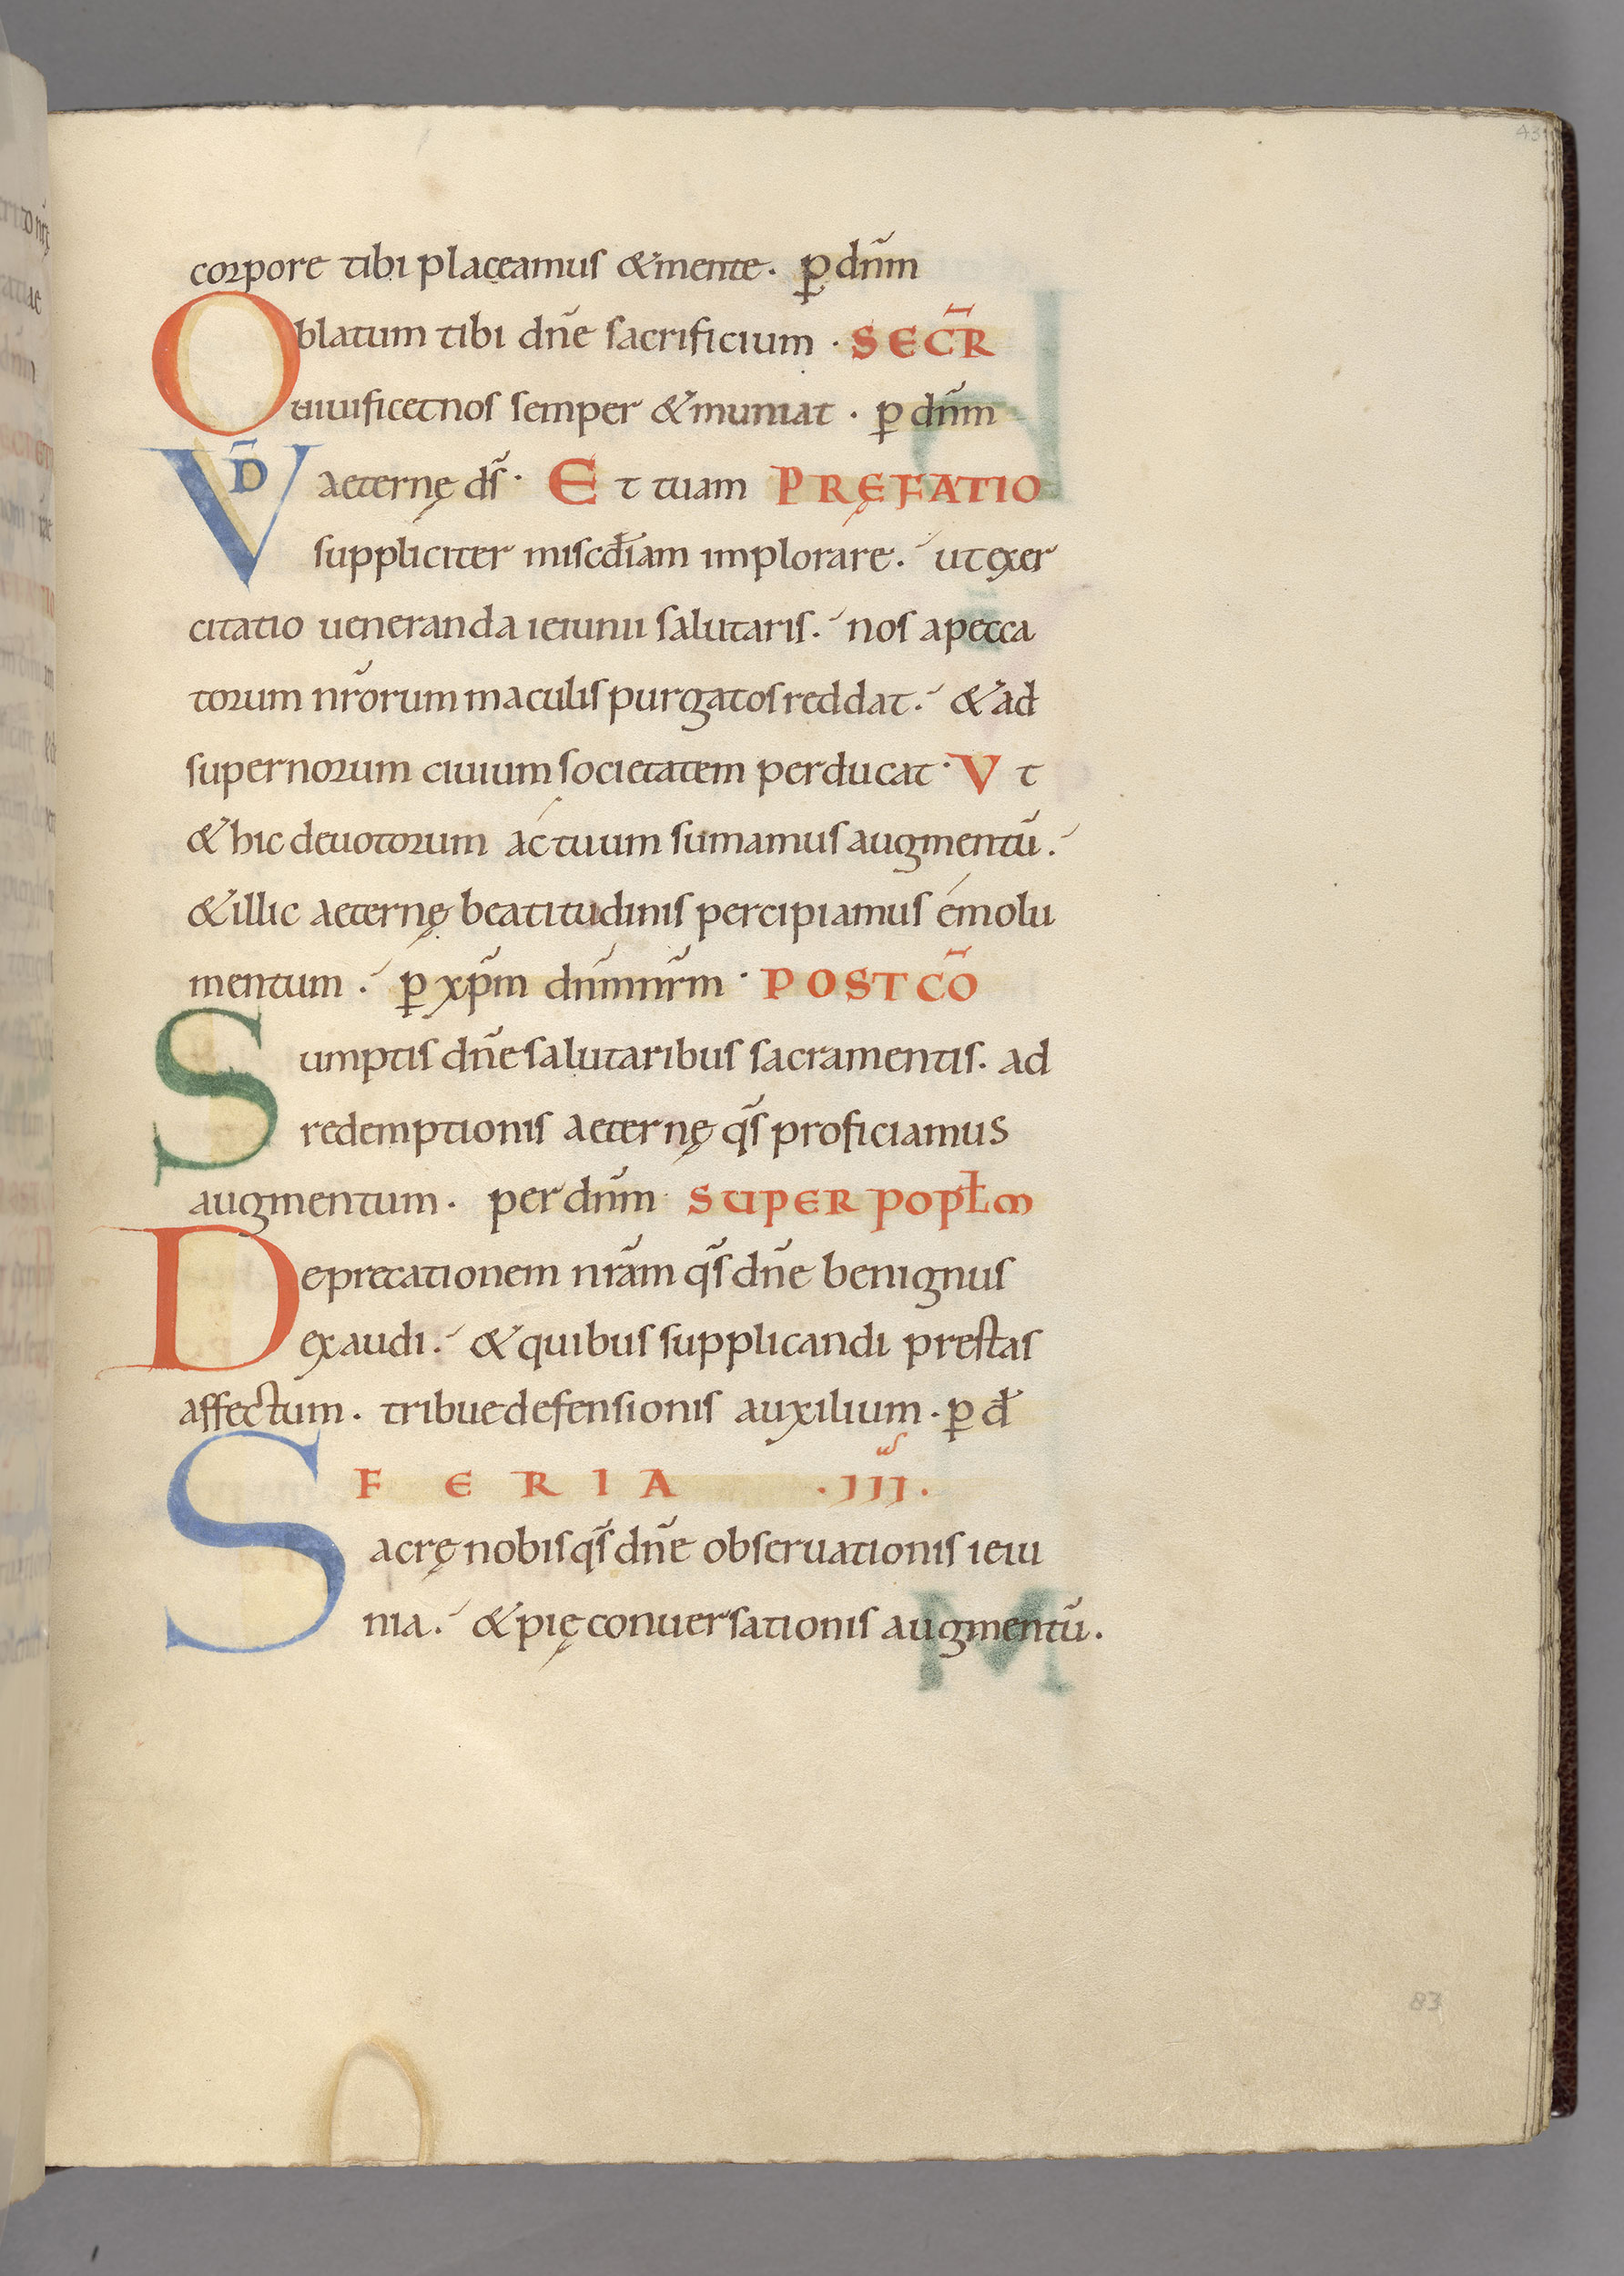 43
corpore tibi placeamus &mente. p̲ dn̄m
Oblatum tibi dn̄e sacrificium · SECR̄
uiuificetnos semper &muniat · p̲ dn̄m
VD̄ aeternę ds̄· Et tuam PRĘFATIO
suppliciter misc̄diam implorare. utexer
citatio ueneranda ieiunii salutaris. nos apecca
torum nr̄orum maculispurgatosreddat. &ad
supernorum ciuium societatem perducat· Vt
&hic deuotorum actuum sumamus augmentū.
&illic aeternę beatitudinis percipiamus emolu
mentum. p̲ xp̄m dn̄mnr̄m· POSTCŌ
Sumptis dn̄e salutaribus sacramentis. ad
redemptionis aeternę qs̄ proficiamus
augmentum. per dn̄m SUPER POPŁM
Deprecationem nr̄am qs̄ dn̄e benignus
exaudi. &quibus supplicandi prestas
affectum. tribuedefensionis auxilium. p̲ đ
FERIA .III.us
Sacrę nobisqs̄ dn̄e obseruationis ieiu
nia. &pię conuersationis augmentū.
83